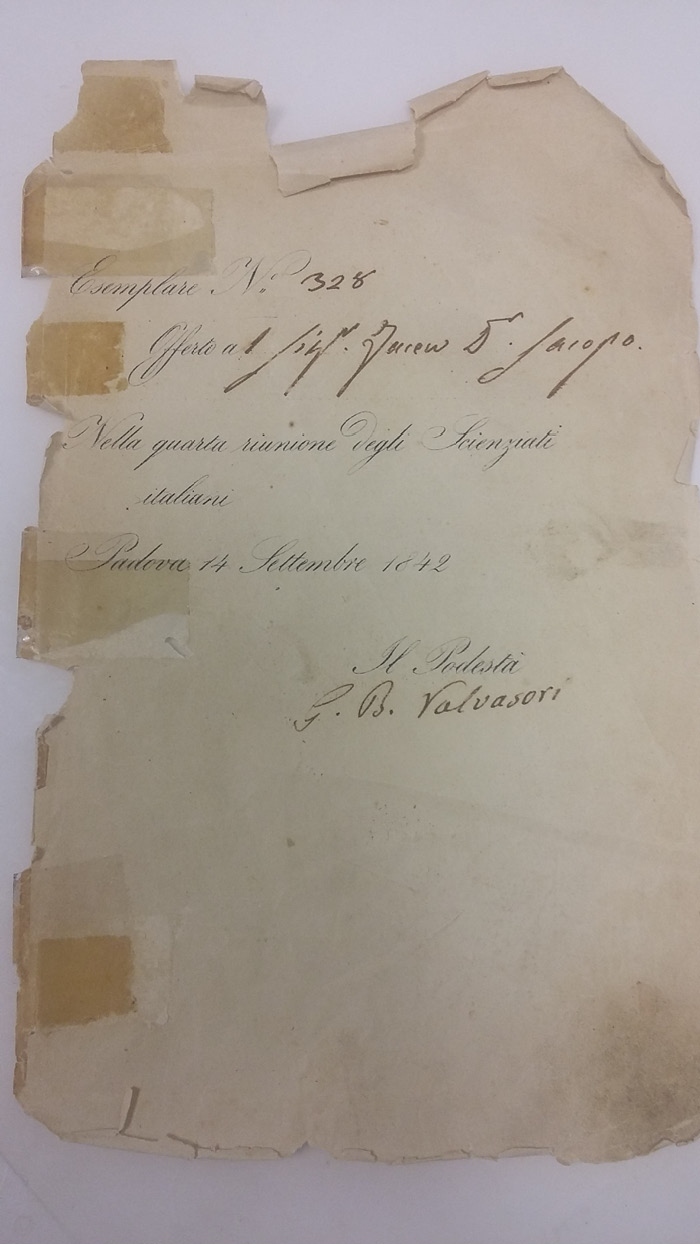 Esemplare N.º 328
Offerto al Sigr. Dr. Jacopo.
Nella quarta riunione degli Scienziati
italiani
Padova 14 Settembre 1842
Il Podestà
G. B. Valvasori